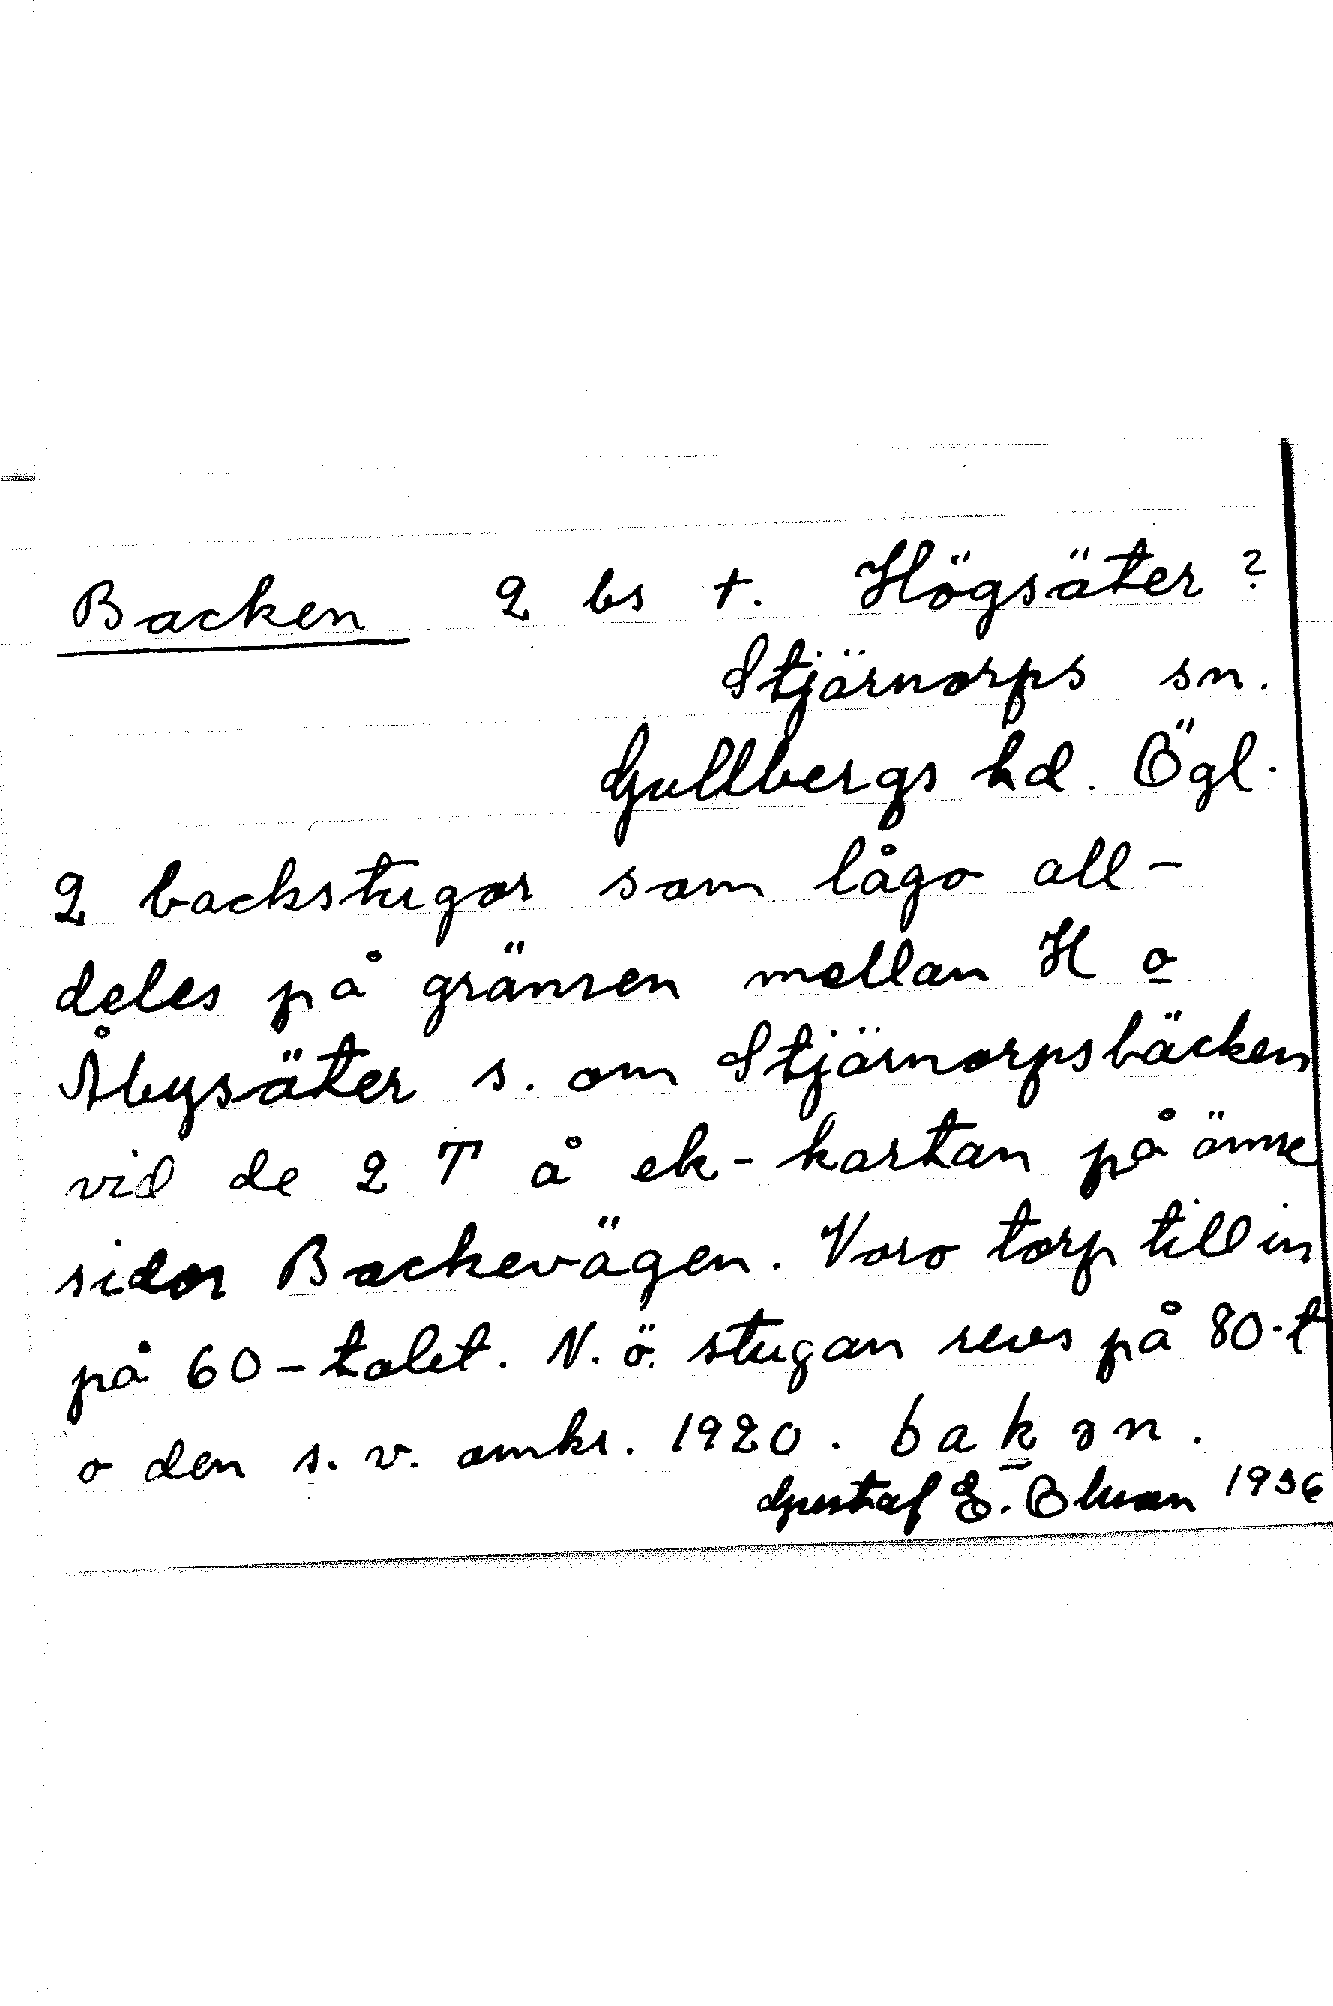 Backen 2 bs t. Högsäter?
Stjärnorps sn.
Gullbergs hd. Ögl.
2 backstugor som lågo all-
deles på gränsen mellan H o
Åbysäter s. om Stjärnorpsbäcken
vid de 2 T å ek-kartan på ömse
sidor Backevägen. Voro torp till in
på 60-talet. N.ö. stugan revs på 80-t
o den s.v. omkr. 1920. bakən.
Gustaf E. Olsson 1936